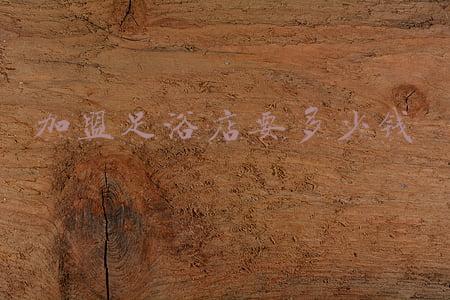 加盟足浴店要多少钱